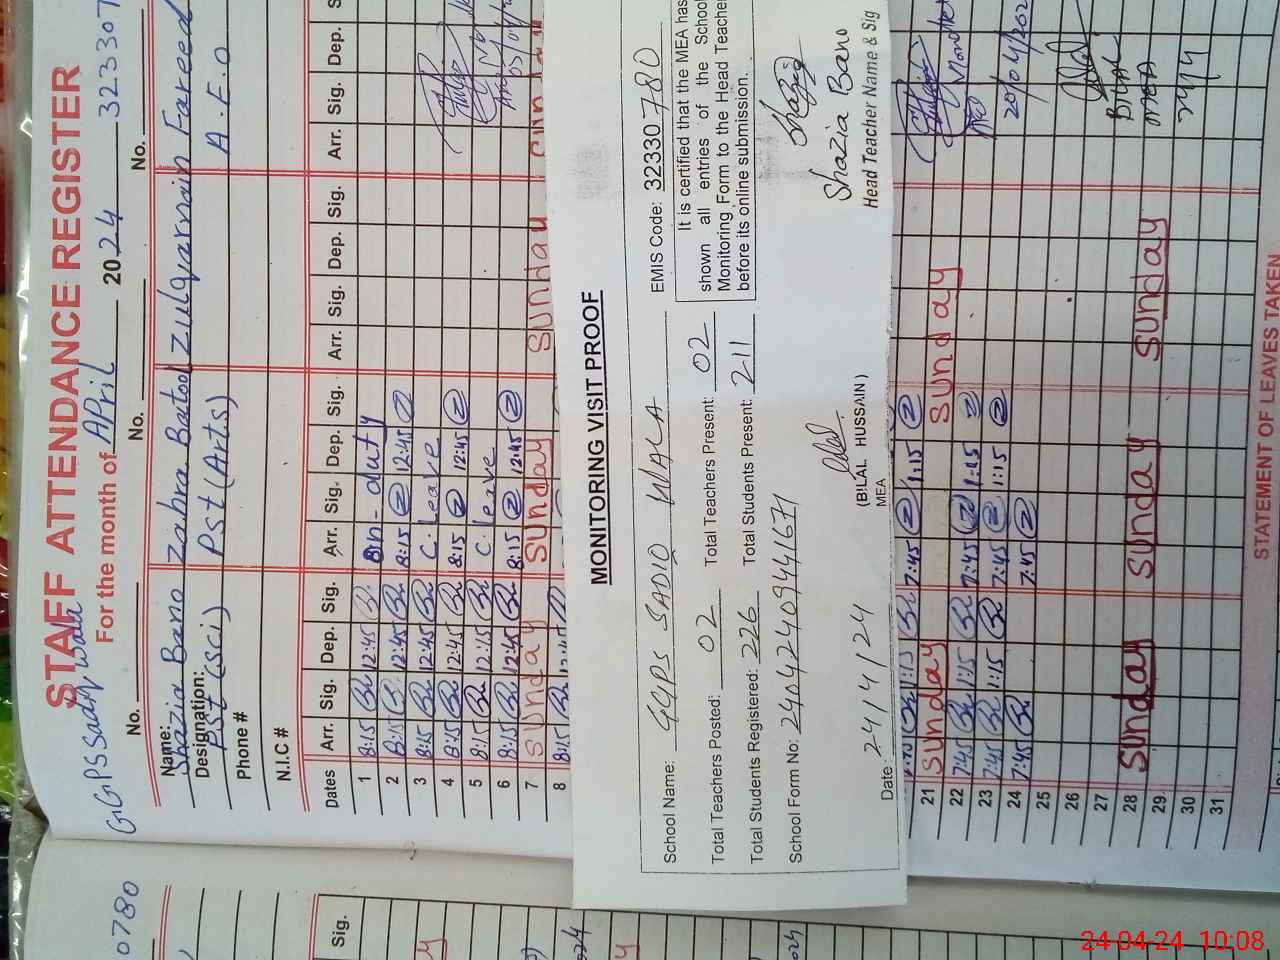 STAFF ATTENDANCE REGISTER
GGPS Sadiq Wala
For the month of April 2024 323307
No. No. No.
Name: Shazia Bano Zahra Batool Zulqarnain Fareed
Designation: PST (Sci) PST (Arts) A.E.O
Phone #
N.I.C #
Dates Arr. Sig. Dep. Sig. Arr. Sig. Dep. Sig. Arr. Sig. Dep. Sig. Arr. Sig. Dep. S
1 8:15 12:45 On-duty
2 8:15 12:45 8:15 12:45
3 8:15 12:45 C. leave
4 8:15 12:45 8:15 12:45
5 8:15 12:15 C. leave
6 8:15 12:45 8:15 12:45
7 Sunday Sunday Sunday Sunday
8 8:15 12:45
MONITORING VISIT PROOF
School Name: GGPS SADIQ WALA
EMIS Code: 32330780
Total Teachers Posted: 02 Total Teachers Present: 02
Total Students Registered: 226 Total Students Present: 211
School Form No: 24042409441671
It is certified that the MEA has
shown all entries of the School
Monitoring Form to the Head Teacher
before its online submission.
Date: 24/4/24
(BILAL HUSSAIN)
MEA
Shazia
Shazia Bano
Head Teacher Name & Sig
1:15 7:45 1:15
21 Sunday Sunday
22 7:45 1:15 7:45 1:15
23 7:45 1:15 7:45 1:15
24 7:45 7:45
25
26
27
28 Sunday Sunday Sunday
29
30
31
20/04/202
Bilal
MEA
24/4
STATEMENT OF LEAVES TAKEN
0780
Sig.
y
2024
y
2024
24-04-24 10:08